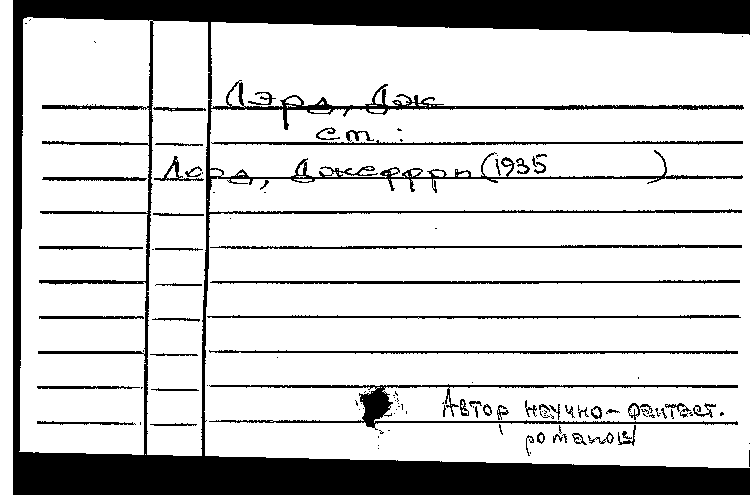 Лэрд, Дж
ст. :
Лорд, Джеффри (1935 )
Автор научно-фантаст.
романов